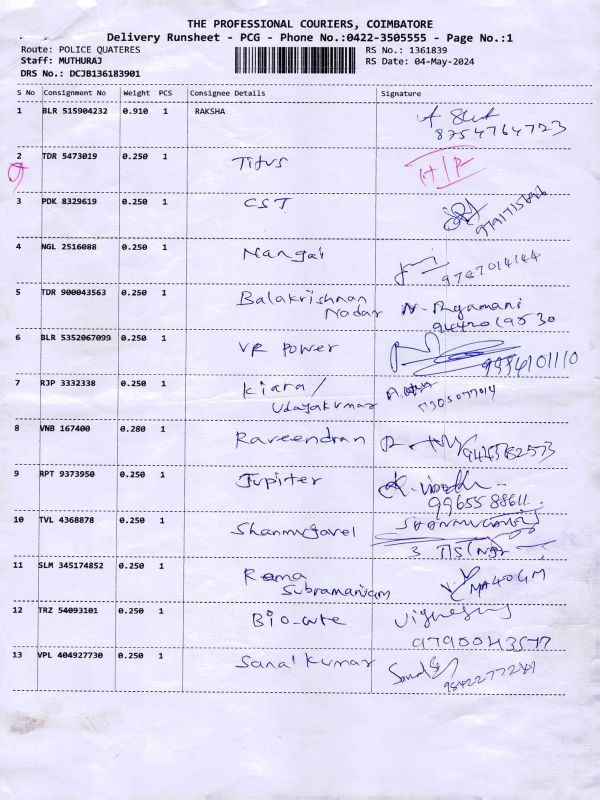 THE PROFESSIONAL COURIERS, COIMBATORE
Delivery Runsheet - PCG - Phone No.:0422-3505555 - Page No.:1
Route: POLICE QUATERES RS No.: 1361839
Staff: MUTHURAJ RS Date: 04-May-2024
DRS No.: DCJB136183901
S No Consignment No Weight PCS Consignee Details Signature
1 BLR 515904232 0.910 1 RAKSHA
8754764723
2 TDR 5473019 0.250 1 Titus
3 PDK 8329619 0.250 1 CST
4 NGL 2516088 0.250 1 Nangai
9787014144
5 TDR 900043563 0.250 1 Balakrishnan
Nadar
6 BLR 5352067099 0.250 1 VR Power
9994101110
7 RJP 3332338 0.250 1 Kiara/
Udayakumar
8 VNB 167400 0.280 1 Raveendran
9 RPT 9373950 0.250 1 Jupiter
9965588611
10 TVL 4368878 0.250 1 Shanmugavel
11 SLM 345174852 0.250 1 Rama
Subramaniam
12 TRZ 54093101 0.250 1 Bio-care
9790043577
13 VPL 404927730 0.250 1 Sanal Kumar